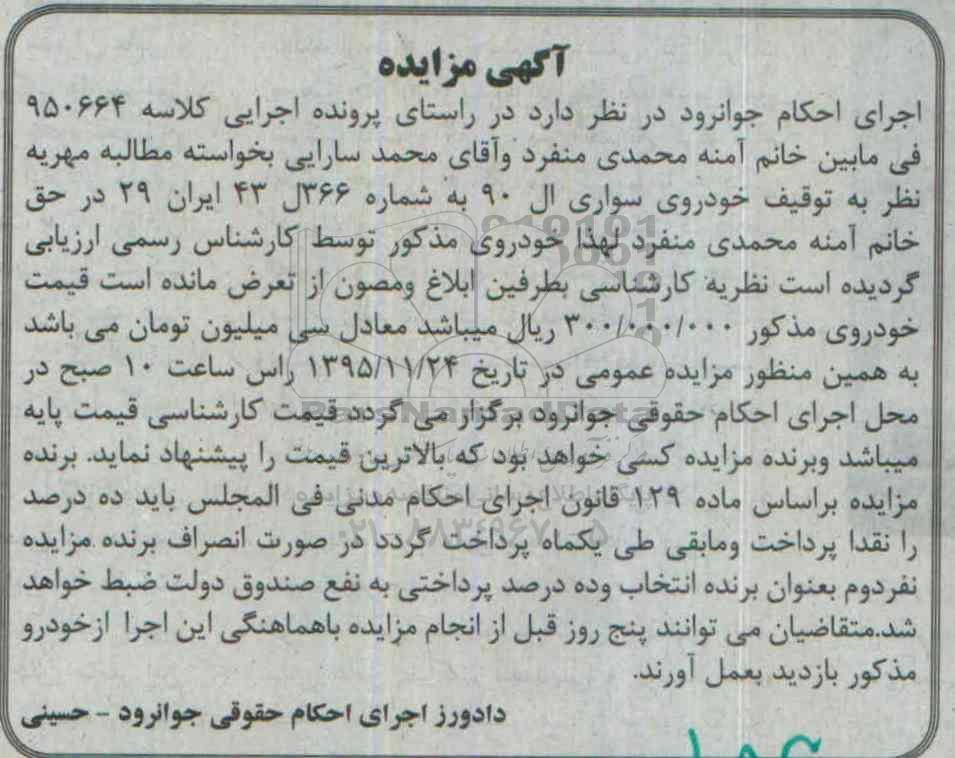 آگهی مزایده
اجرای احکام جوانرود در نظر دارد در راستای پرونده اجرایی کلاسه ۹۵۰۶۶۴
فی مابین خانم آمنه محمدی منفرد وآقای محمد سارایی بخواسته مطالبه مهریه
نظر به توقیف خودروی سواری ال ۹۰ به شماره ۳۶۶ل ۴۳ ایران ۲۹ در حق
خانم آمنه محمدی منفرد لهذا خودروی مذکور توسط کارشناس رسمی ارزیابی
گردیده است نظریه کارشناسی بطرفین ابلاغ ومصون از تعرض مانده است قیمت
خودروی مذکور ۳۰۰/۰۰۰/۰۰۰ ریال میباشد معادل سی میلیون تومان می باشد
به همین منظور مزایده عمومی در تاریخ ۱۳۹۵/۱۱/۲۴ راس ساعت ۱۰ صبح در
محل اجرای احکام حقوقی جوانرود برگزار می گردد قیمت کارشناسی قیمت پایه
میباشد وبرنده مزایده کسی خواهد بود که بالاترین قیمت را پیشنهاد نماید. برنده
مزایده براساس ماده ۱۲۹ قانون اجرای احکام مدنی فی المجلس باید ده درصد
را نقدا پرداخت ومابقی طی یکماه پرداخت گردد در صورت انصراف برنده مزایده
نفردوم بعنوان برنده انتخاب وده درصد پرداختی به نفع صندوق دولت ضبط خواهد
شد.متقاضیان می توانند پنج روز قبل از انجام مزایده باهماهنگی این اجرا ازخودرو
مذکور بازدید بعمل آورند.
دادورز اجرای احکام حقوقی جوانرود - حسینی